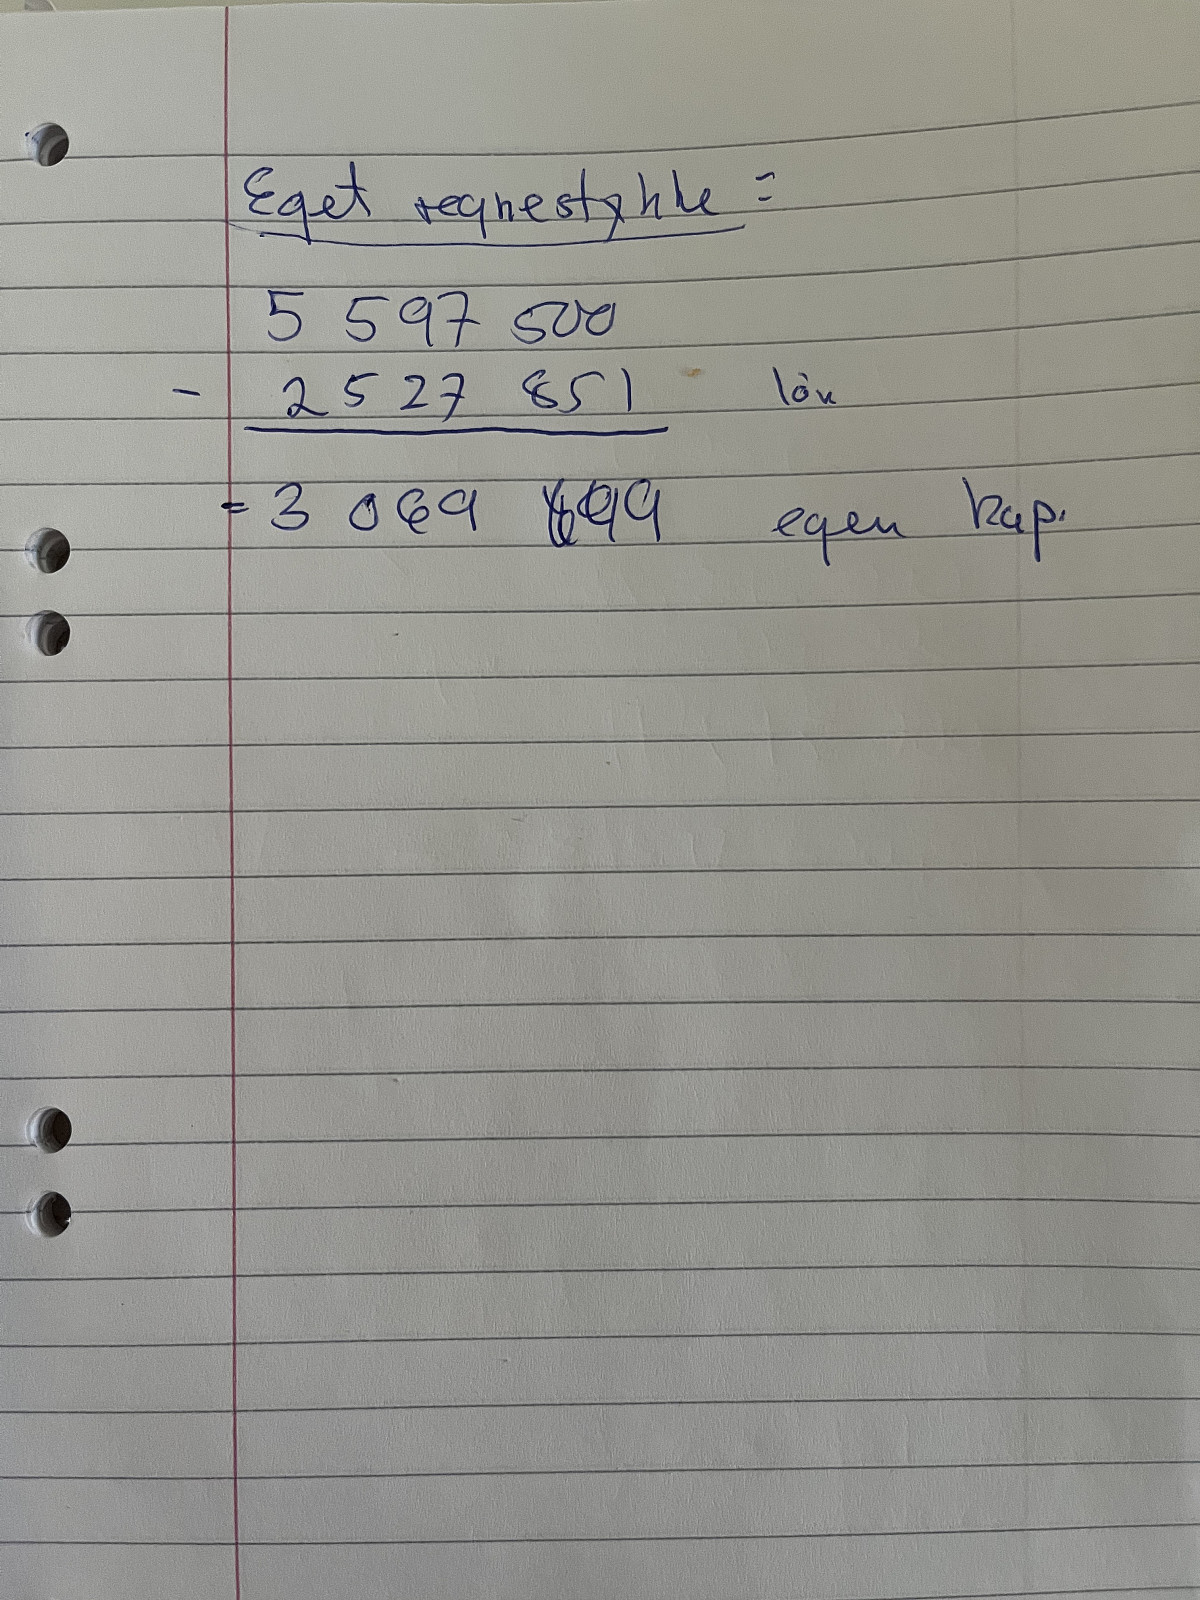 Eget regnestykke =
5 597 500
- 2 527 851 lån
= 3 069 699 egen kap.